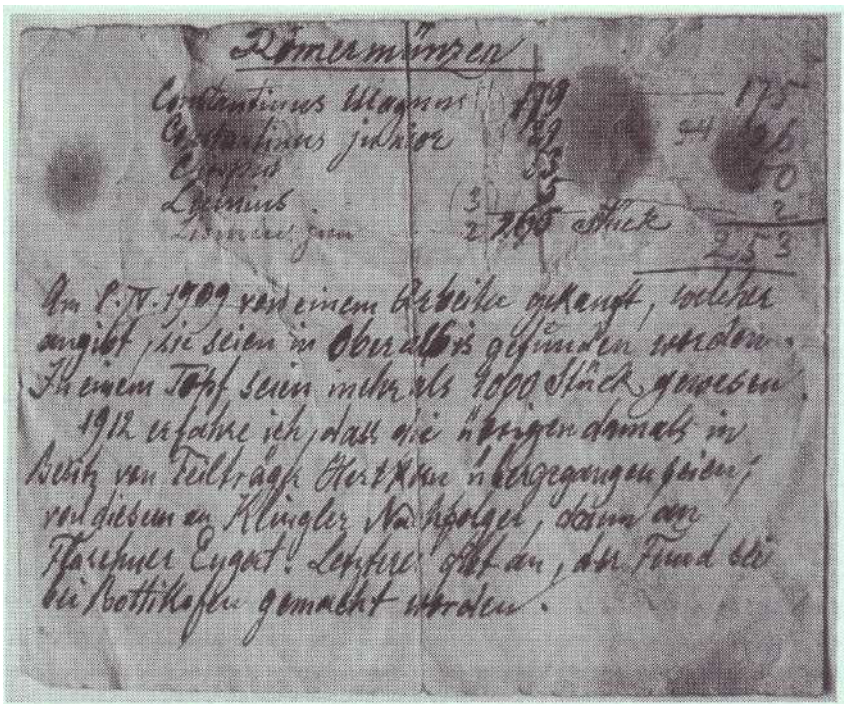 Römermünzen
Constantinus Magnus 179 — 175
Constantinus junior 29 26
Crispus 53 50
Licinius (3 5 2
Licinius jun 2 265 Stück 253
Am 8. IV. 1909 von einem Arbeiter gekauft, welcher
angibt, sie seien in Oberalbis gefunden worden.
In einem Topf seien mehr als 1000 Stück gewesen.
1912 erfahre ich, dass die übrigen damals in
Besitz von übergegangen seien,
von diesem an Klingler Nachfolger, dann an
Flaschner Engert. Letzterer gibt an, der Fund sei
bei Bottikofen gemacht worden.